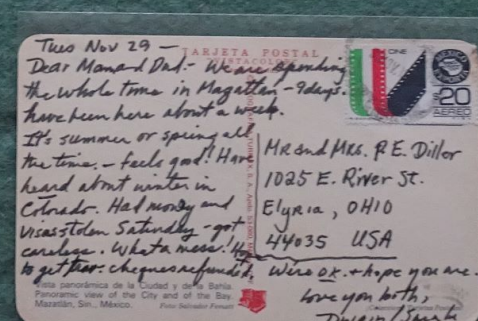 Tues Nov 29 -
TARJETA POSTAL
VISTACOLOR
Dear Mom and Dad - We are spending
the whole time in Mazatlan - 9 days.
have been here about a week.
It's summer or spring all
the time. - feels good! Have
heard about winter in
Colorado. Had money and
visas stolen Saturday - got
careless. What a mess!
to get trav. cheques refunded. We're OK. + hope you are.
Love you both,
CINE
MEXICO
EXPORTA
$20
AEREO
MR and MRS. R. E. Diller
1025 E. River St.
Elyria, OHIO
44035 USA
Vista panorámica de la Ciudad y de la Bahía.
Panoramic view of the City and of the Bay.
Mazatlán, Sin., México.
Foto: Salvador Ferrari